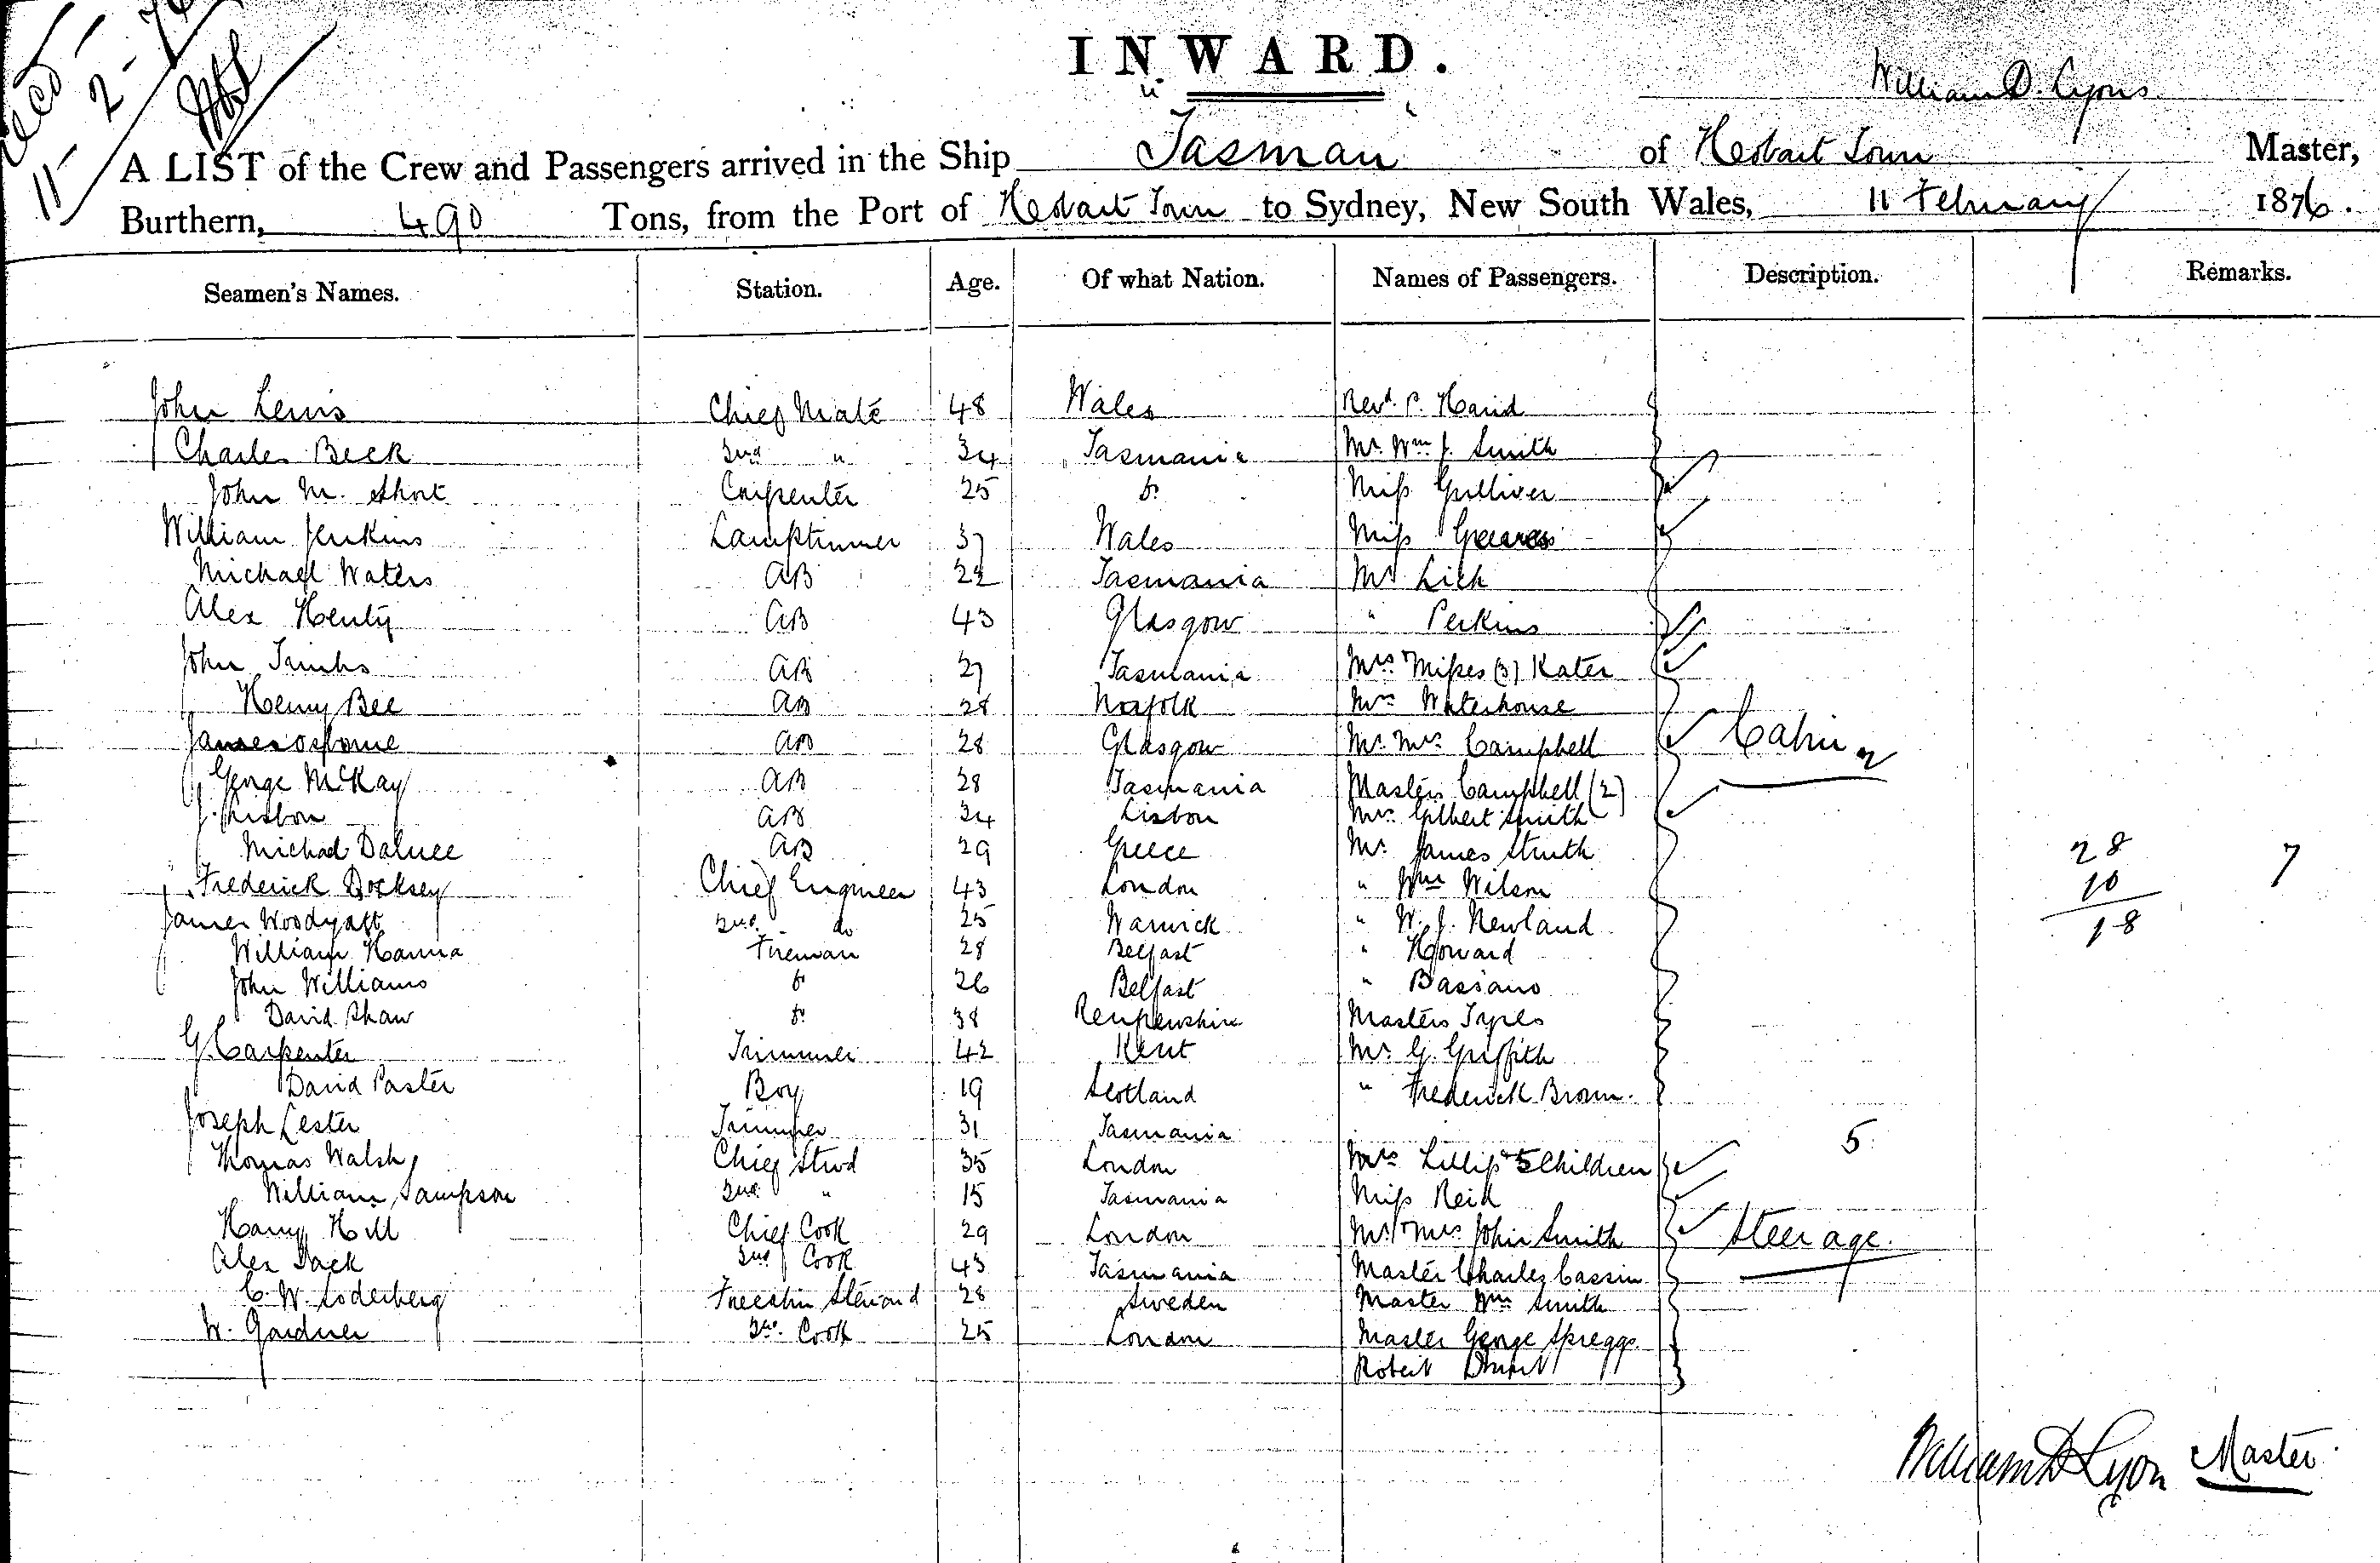 Recd
11-2-76
INWARD.
William D. Lyons
A LIST of the Crew and Passengers arrived in the Ship Tasman of Hobart Town Master,
Burthern, 490 Tons, from the Port of Hobart Town to Sydney, New South Wales, 11 February 1876.
Seamen's Names. Station. Age. Of what Nation. Names of Passengers. Description. Remarks.
John Lewis Chief Mate 48 Wales Revd. P. Hand
Charles Beck 2nd " 34 Tasmania Mr. Wm J. Smith
John M. Short Carpenter 25 Do Miss Gulliver
William Jenkins Lamptrimmer 37 Wales Miss Greaves
Michael Waters AB 22 Tasmania Mr
Alex Henty AB 43 Glasgow " Perkins
John AB 27 Tasmania Mrs Misses (3) Kater
Henry Bee AB 28 Norfolk Mrs Waterhouse
James Osborne AB 28 Glasgow Mr. Mrs. Campbell Cabin
George McKay AB 28 Tasmania Masters Campbell (2)
J. Lisbon AB 34 Lisbon Mrs Gilbert Smith
Michael AB 29 Greece Mr. James 28 7
Frederick Docksey Chief Engineer 43 London " Wm Wilson 10
James Woodyatt 2nd do 25 Warwick " W. J. Newland 18
William Hanna Fireman 28 Belfast " Howard
John Williams Do 26 Belfast " Bassano
David Shaw Do 38 Renfrewshire Masters
G. Carpenter Trimmer 42 Kent Mr. G. Griffith
David Paster Boy 19 Scotland " Frederick Brown.
Joseph Lester Trimmer 31 Tasmania
Thomas Walsh Chief Stwd 35 London Mrs 5 Children 5
William Sampson 2nd " 15 Tasmania Miss Reid
Harry Hill Chief Cook 29 London Mr. Mrs John Smith Steerage.
Alex Jack 2nd Cook 43 Tasmania Master Charles Cassin
C. W. Soderberg Steward 28 Sweden Master Wm Smith
W. Gardner 2nd. Cook 25 London Master George Spreggs
Robert
William D Lyon Master